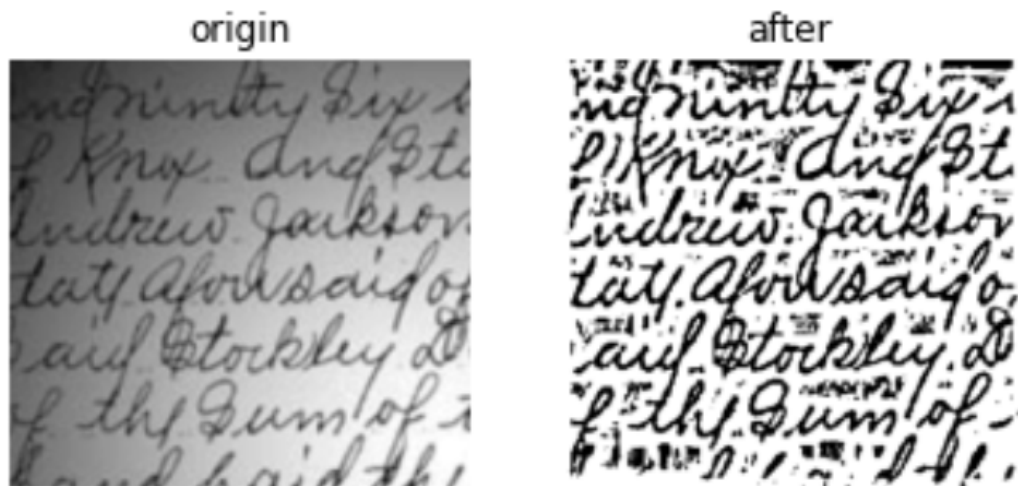 origin
after
ninety Six
Knox. And Sta
Andrew Jackson
tate Aforesaid o
said Stockley D
of the Sum of t
hand paid the
ninety Six
Knox. And Sta
Andrew Jackson
tate Aforesaid o
said Stockley D
of the Sum of